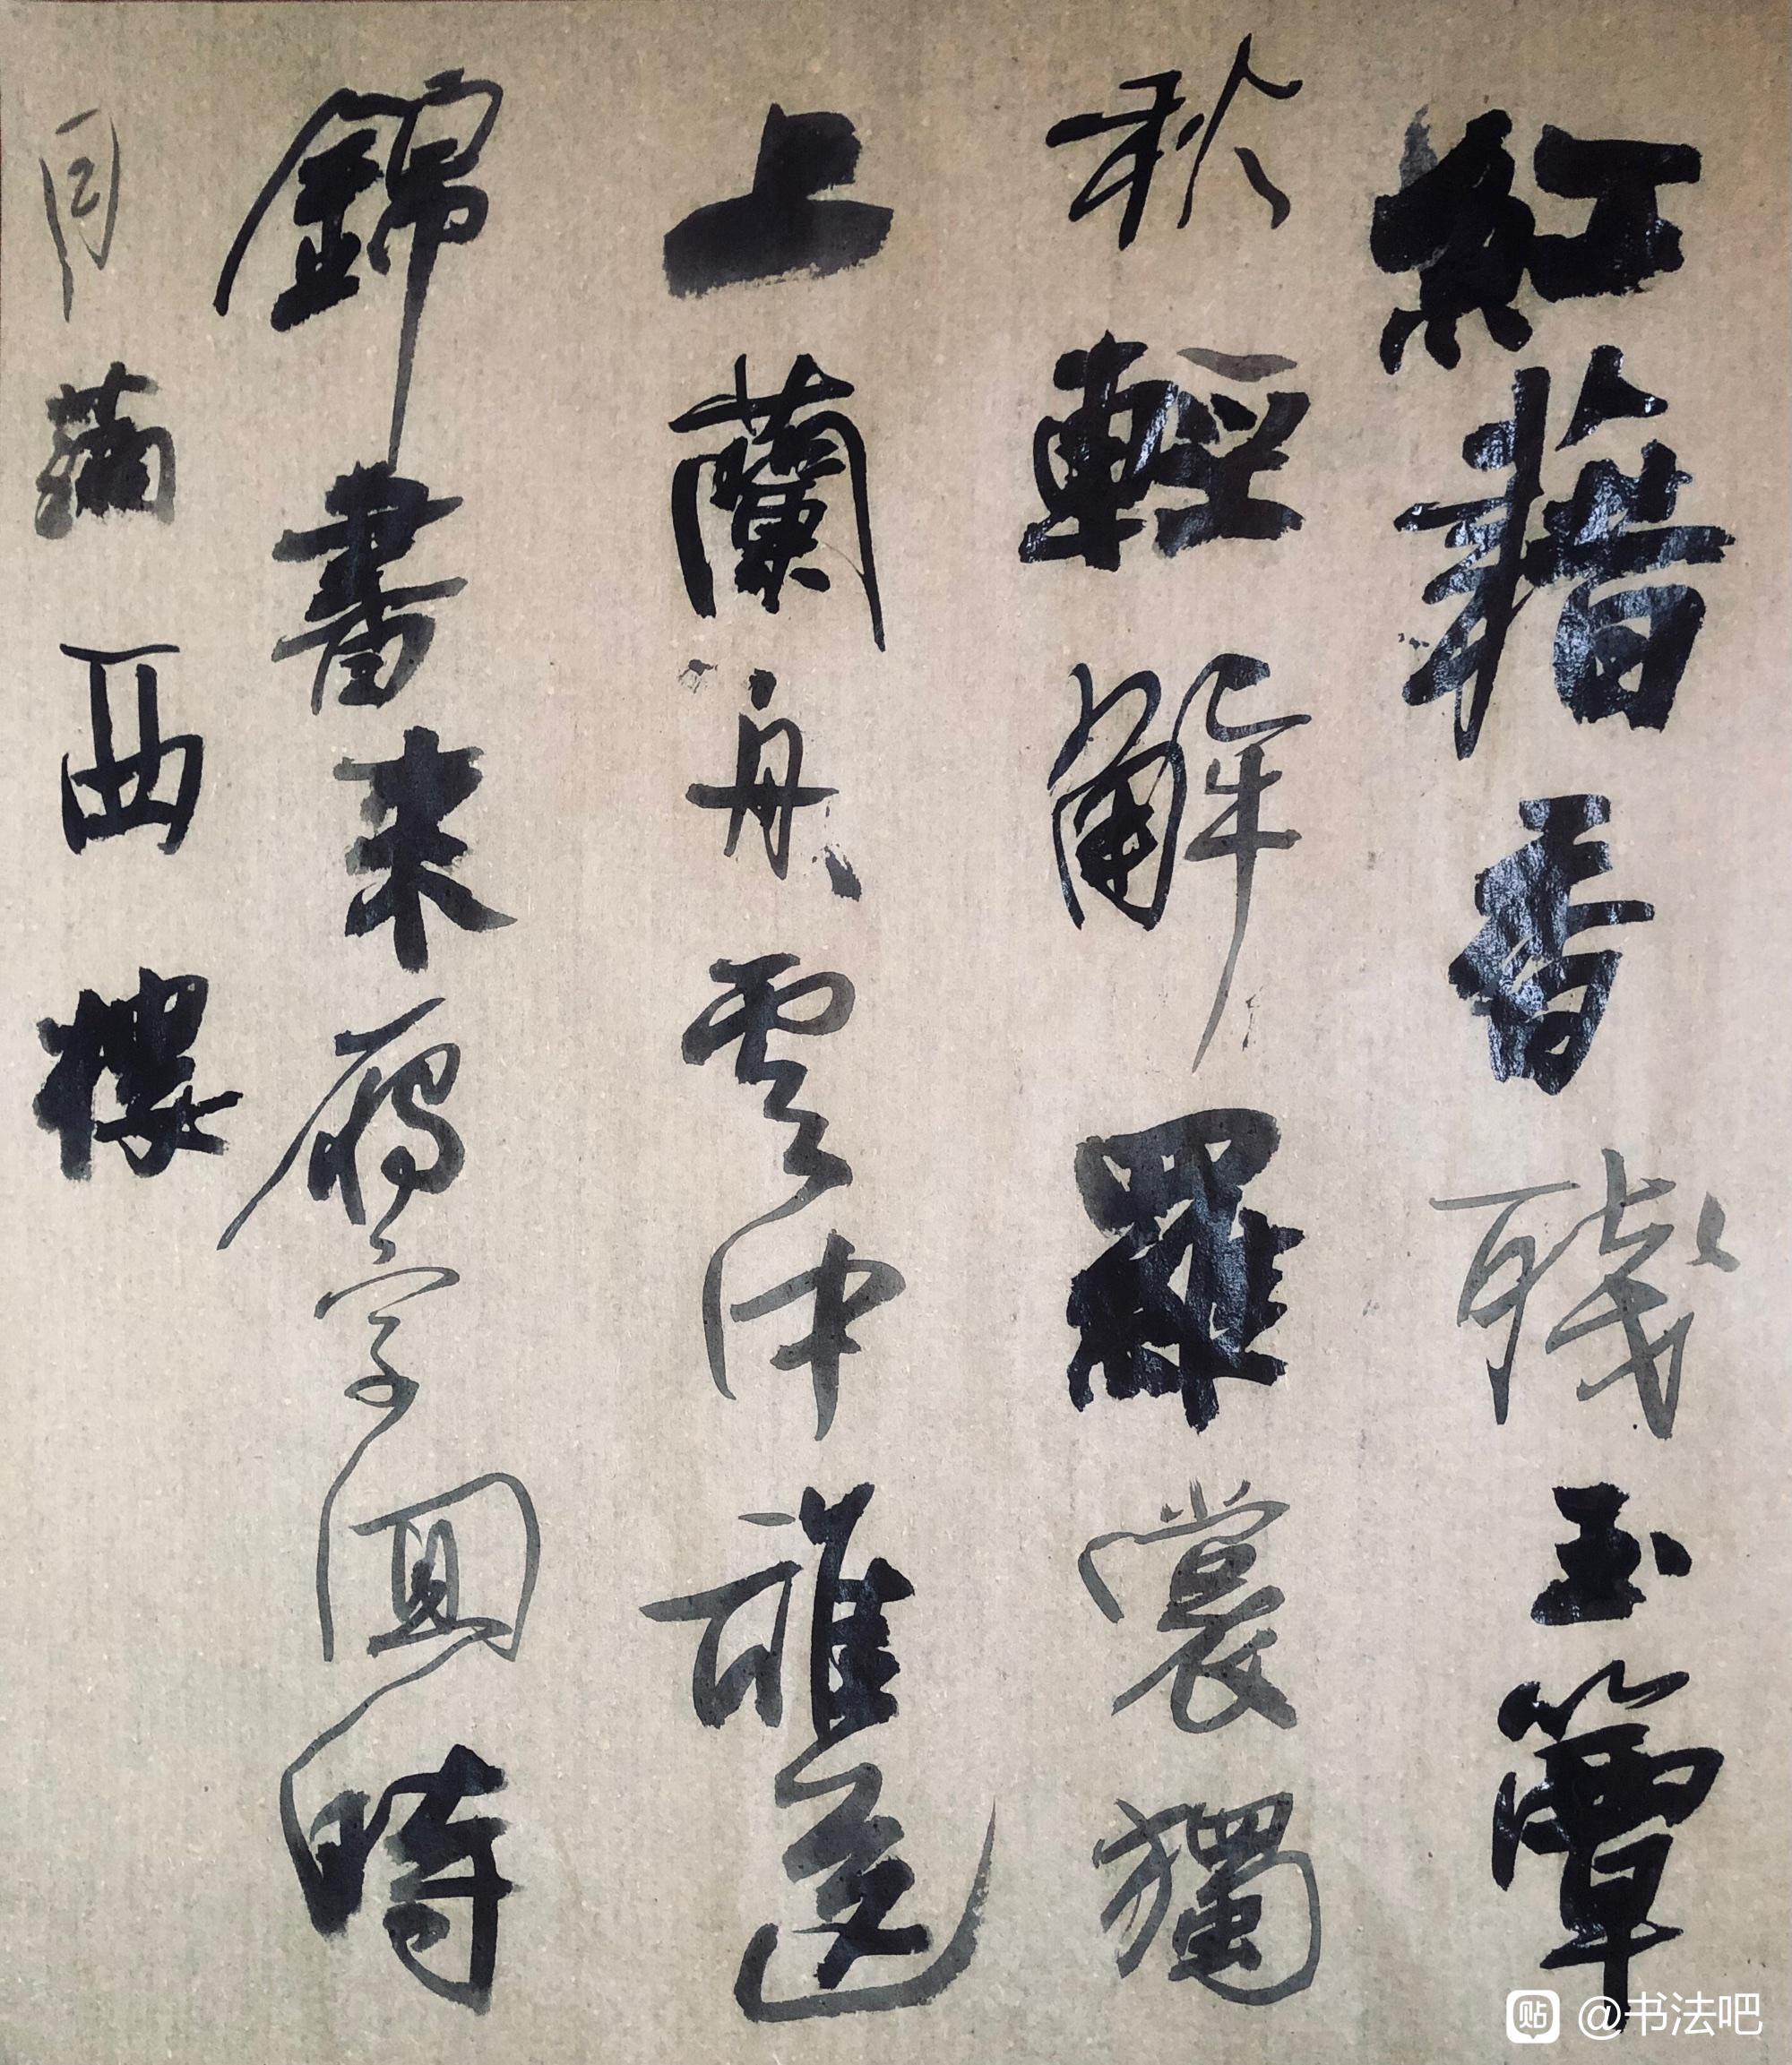 紅藉香殘玉簟
秋輕解羅裳獨
上蘭舟雲中誰遥
錦書来雁字回時
月滿西樓
贴 @书法吧